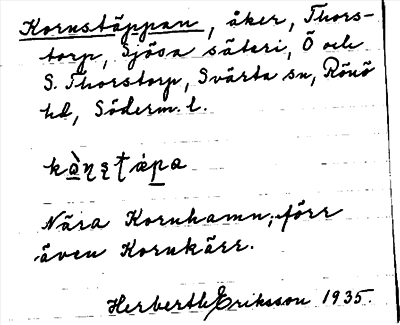 Kornstäppan, åker, Thors-
torp, Sjösa säteri, Ö och
S. Thorstorp, Svärta sn, Rönö
hd, Söderm. l.
Nära Kornhamn, förr
även Kornkärr.
Herbert Eriksson 1935.